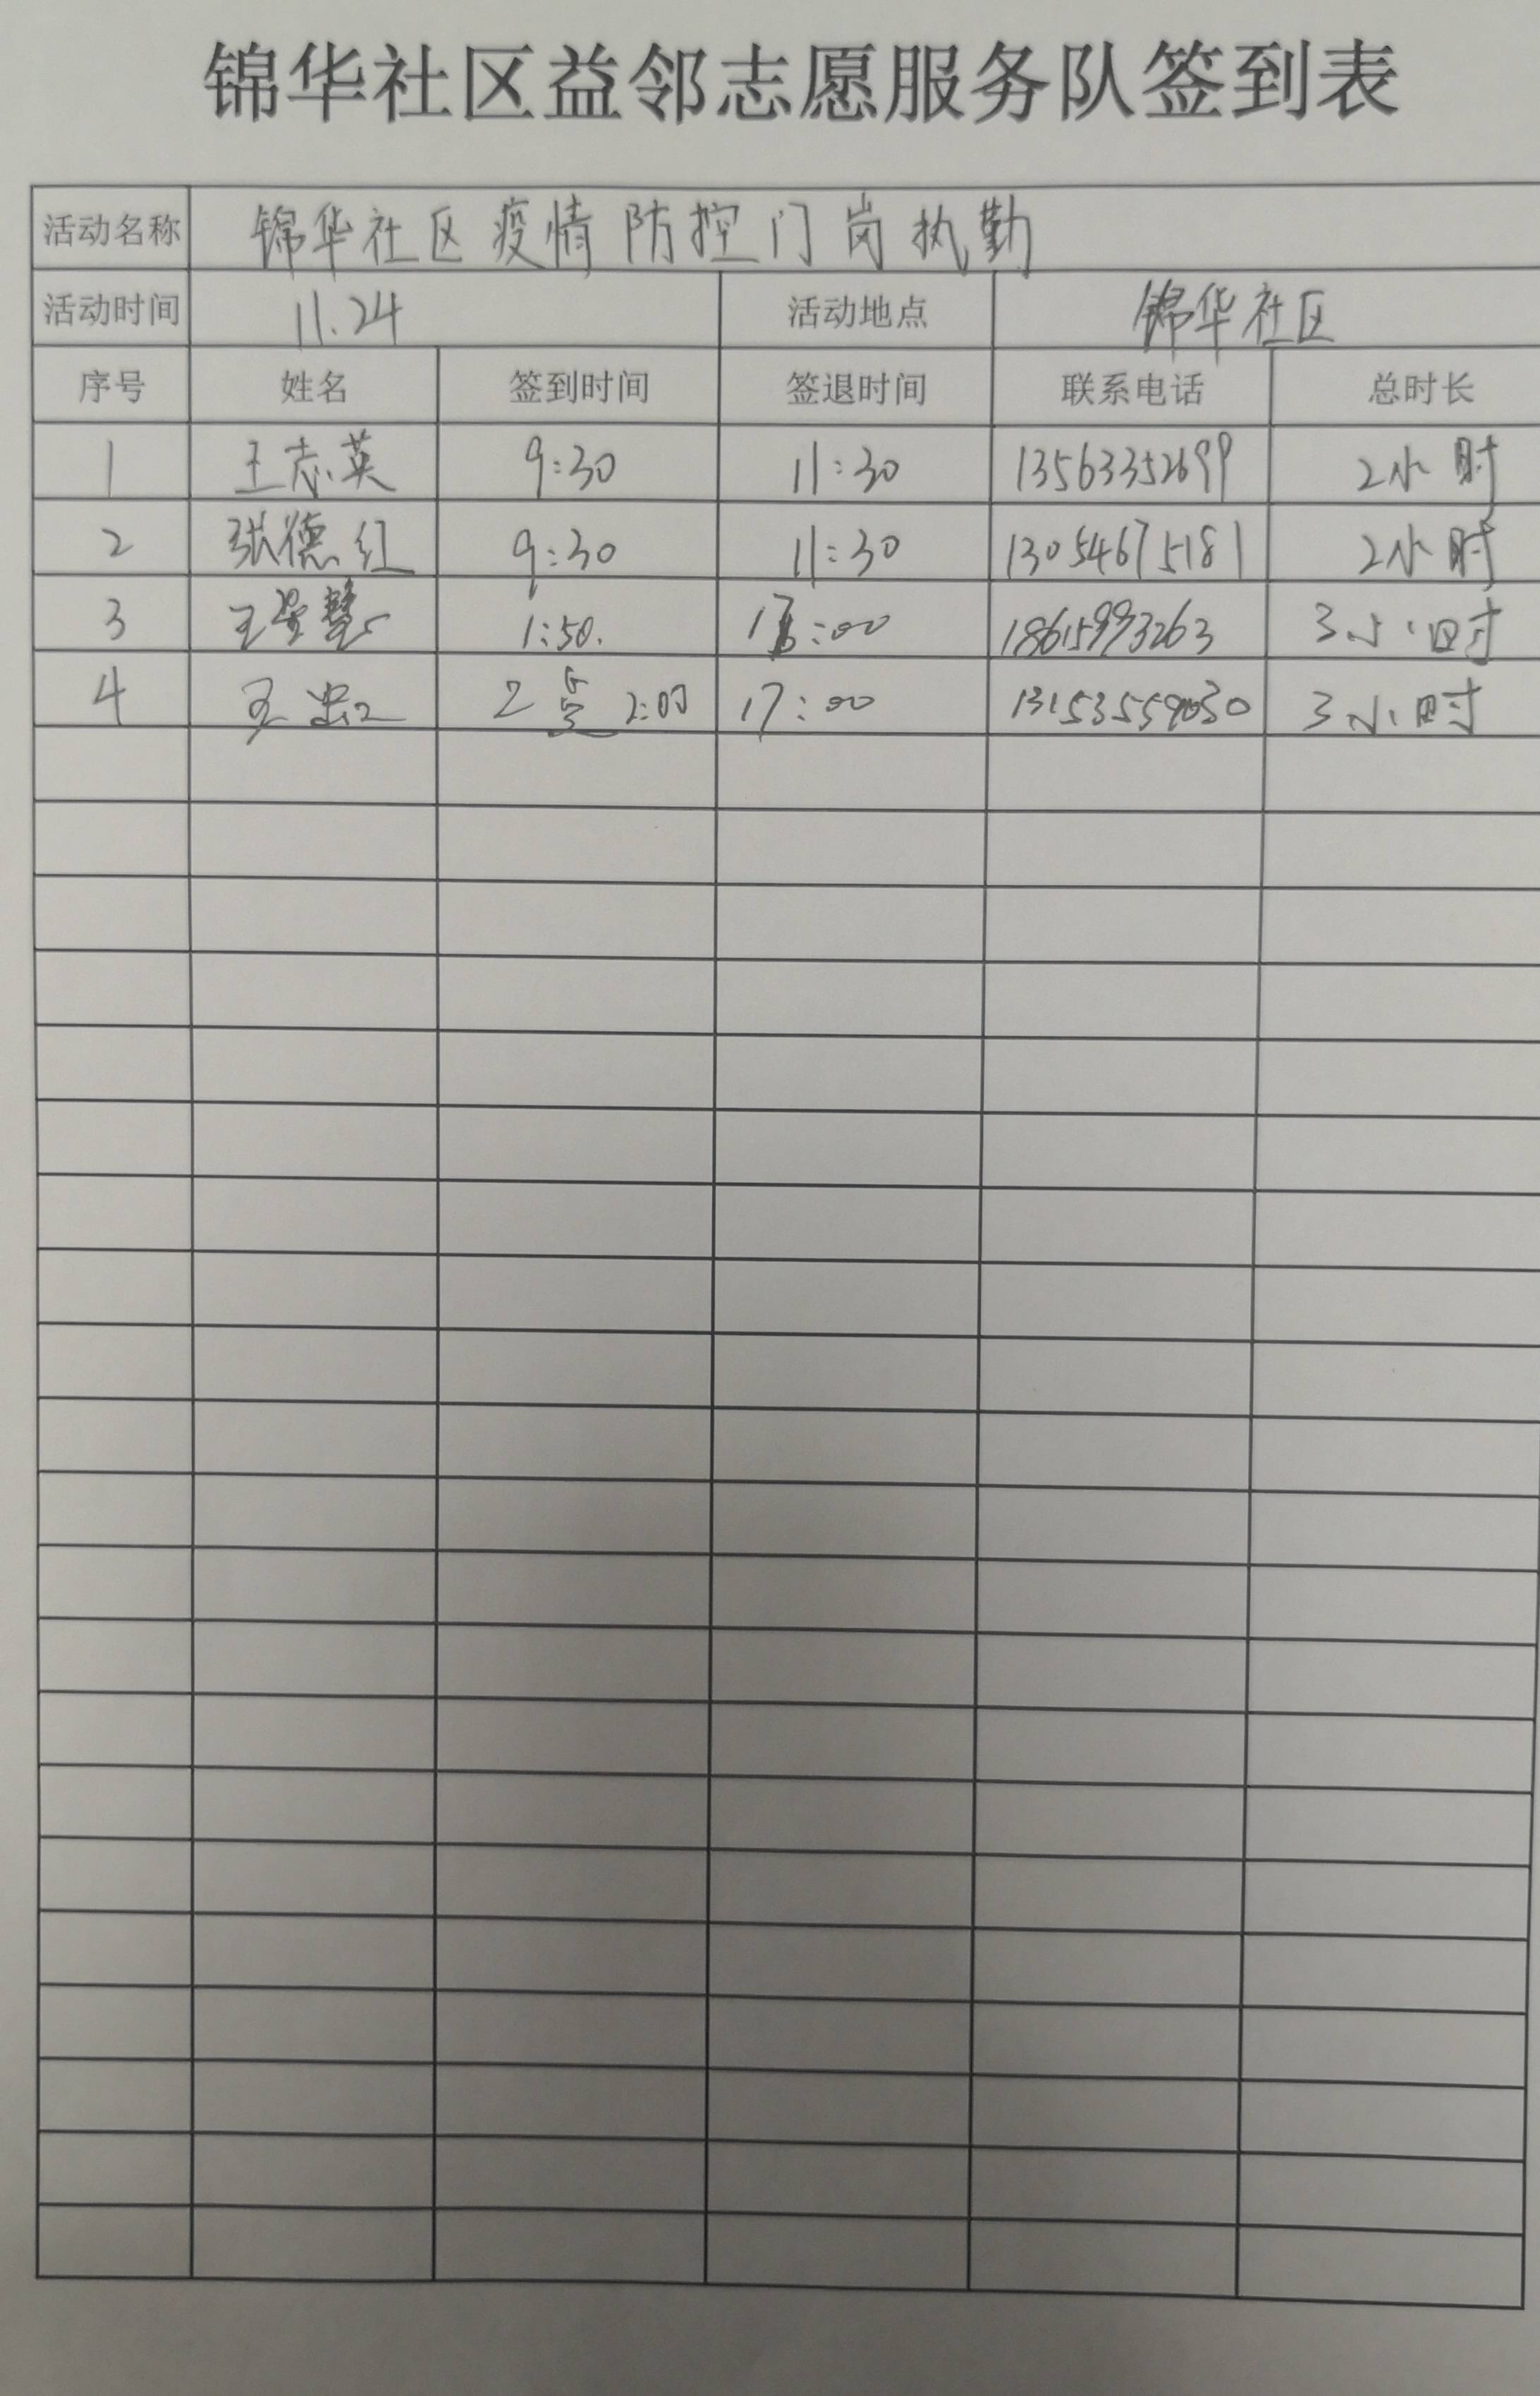 锦华社区益邻志愿服务队签到表
活动名称 锦华社区疫情防控门岗执勤
活动时间 11.24 活动地点 锦华社区
序号 姓名 签到时间 签退时间 联系电话 总时长
1 王志英 9:30 11:30 13563352699 2小时
2 张德红 9:30 11:30 13054675181 2小时
3 王 慧 1:50. :00 18615993263 3小时
4 王 2 2:00 17:00 3小时